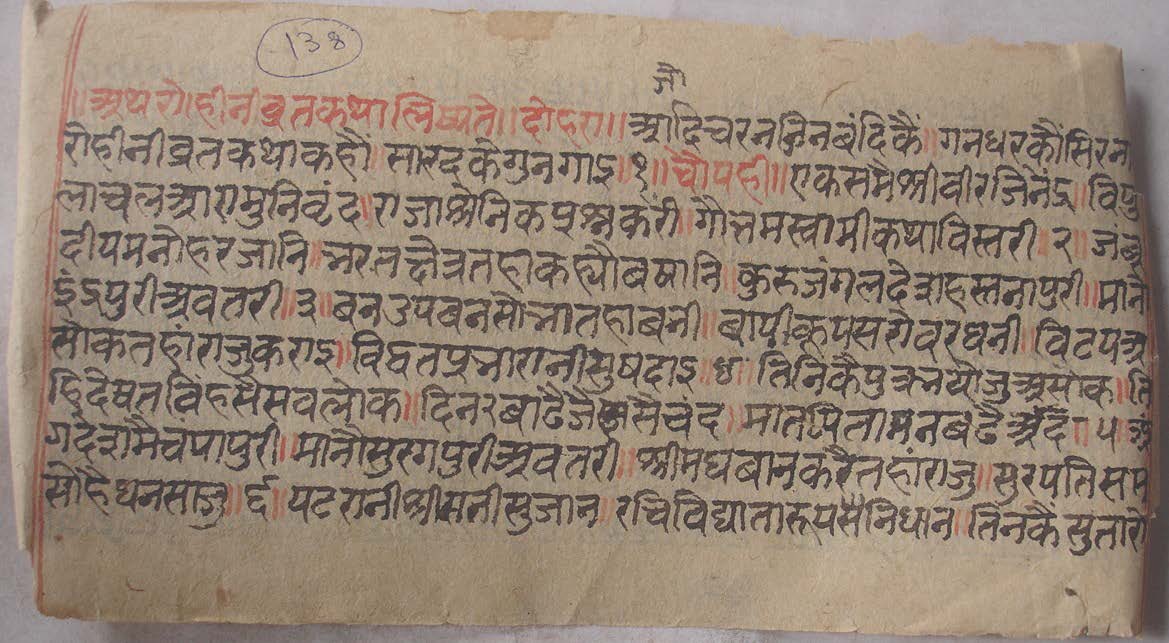 138
जौ
॥अथ रोहीनीव्रतकथा लिष्यते॥ दोहरा॥ आदिचरन जिन बंदिकैं॥ गनधरकौंसिरना
रोहीनीव्रतकथाकहौं॥ सारदकेगुनगाऽ॥१॥ चौपही॥ एकसमैश्रीवीरजिनेंऽ॥ विपु
लाचलआएमुनिवृंद॥ राजाश्रेनिकप्रश्नकरी॥ गौत्तमस्वामीकथाविस्तरी॥२॥ जंबू
दीपमनोहरजानि॥ भरतछैत्रतहाकह्यौबषानि॥ कुरुजंगलदेशहस्तनापुरी॥ मानो
इंऽपुरीअवतरी॥३॥ बनउपबनसोभातहाबनी॥ बापीकूपसरोवरघनी॥ विटपअ
सोकतहांराजुकराऽ॥ विद्युतप्रभारानीसुषदाऽ॥४॥ तिनिकैपुत्रभयोजुअसोक॥ ति
हिदेषतविहसैसवलोक॥ दिन२बाढैजैसैचंद॥ मातपितामनबढैअनंद॥५॥ अं
गदेशमैचंपापुरी॥ मानोसुरगपुरीअवतरी॥ श्रीमघबानकरैतहांराजु॥ सुरपतिसम
सोंहैधनसाजु॥६॥ पटरानीश्रीमतीसुजान॥ रचिविद्यातारूपसैनिधान॥ तिनकैसुतारो